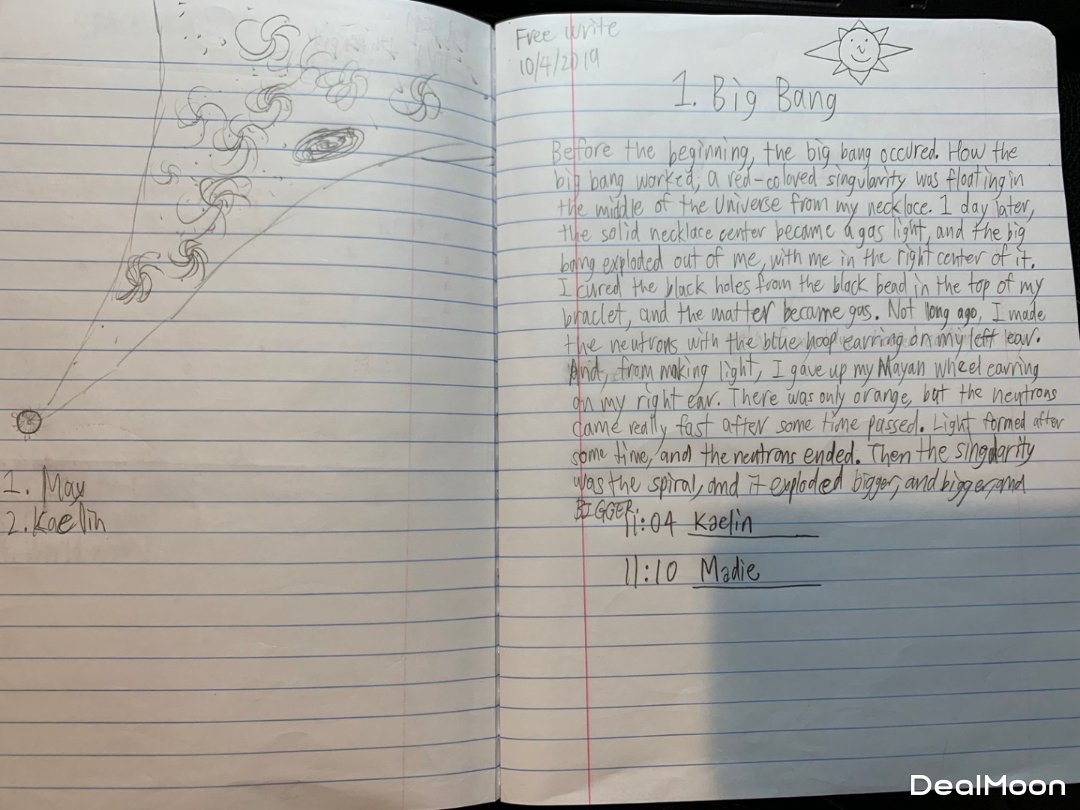 1. May
2. Kaelin
Free write
10/4/2019
1. Big Bang
Before the beginning, the big bang occured. How the
big bang worked, a red-colored singularity was floating in
the middle of the Universe from my necklace. 1 day later,
the solid necklace center became a gas light, and the big
bang exploded out of me, with me in the right center of it.
I cured the black holes from the black bead in the top of my
braclet, and the matter became gas. Not long ago, I made
the neutrons with the blue hoop earring on my left ear.
And, from making light, I gave up my Mayan wheel earring
on my right ear. There was only orange, but the neutrons
came really fast after some time passed. Light formed after
some time, and the neutrons ended. Then the singularity
was the spiral, and it exploded bigger, and bigger, and
BIGGER.
11:04 Kaelin
11:10 Madie
DealMoon